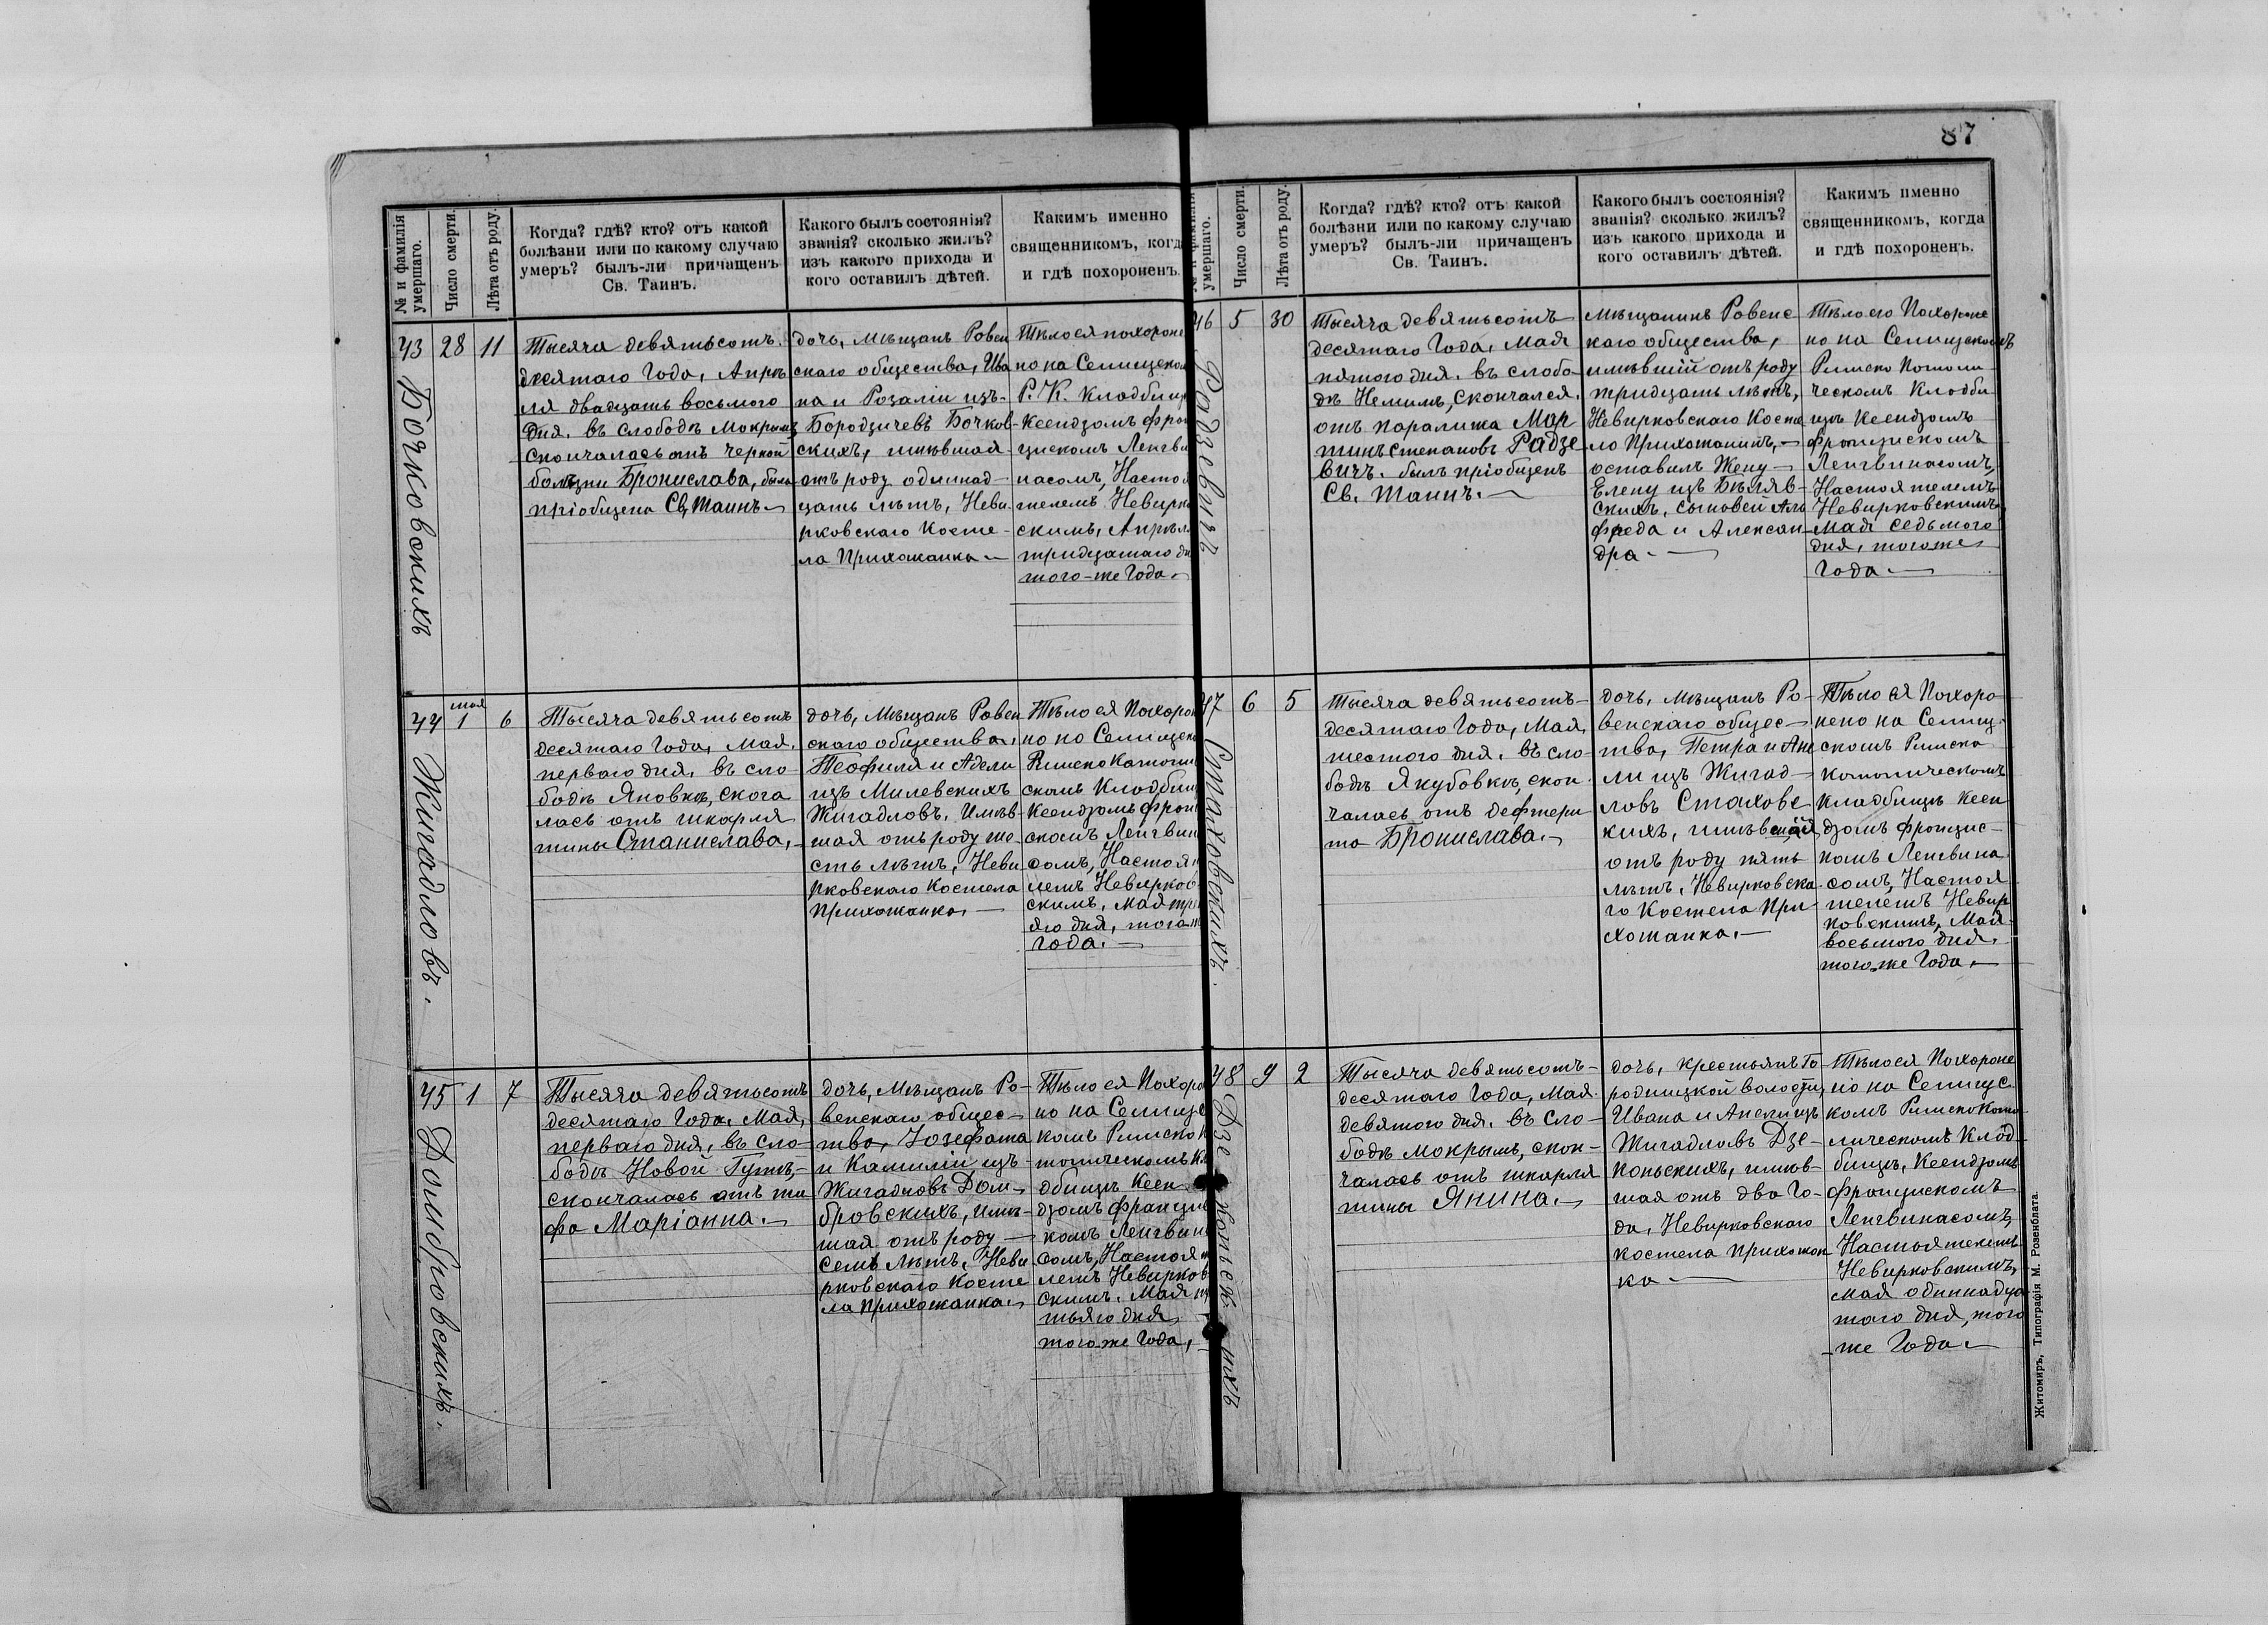 87
№ и фамилія
умершаго.
Число смерти.
Лѣта отъ роду.
Когда? гдѣ? кто? отъ какой
болѣзни или по какому случаю
умеръ? былъ-ли причащенъ
Св. Таинъ.
Какого былъ состоянія?
званія? сколько жилъ?
изъ какого прихода и
кого оставилъ дѣтей.
Какимъ именно
священникомъ, когда
и гдѣ похороненъ.
43 28 11
Бочковскихъ
Тысяча девятьсотъ
десятаго Года, Апрѣ
ля двадцать восьмого
дня. въ слободѣ Мокрымъ
скончалась отъ черной
болѣзни Бронислава, была
пріобщена Св. Таинъ
дочь, Мѣщанъ Ровен
скаго общества, Ива
на и Розаліи изъ
Бородзичевъ Бочков-
скихъ, имѣвшая
отъ роду одинад-
цать лѣтъ, Неви
рковскаго Косте-
ла Прихожанка
Тѣло ея похороне
но на Селищском
Р. К. кладбищ
Ксендзомъ Фран
цискомъ Ленгви
насомъ, Настоя
телемъ Невирко
скимъ, Апрѣля
тридцатаго дн
того-же Года
44 мая 1 6
Жигадловъ.
Тысяча девятьсотъ
десятаго Года, Мая,
перваго дня. въ сло-
бодѣ Яновкѣ, скога
лась отъ шкарля
тины Станислава,
дочь, Мѣщанъ Ровен
скаго общества,
Теофиля и Адели
изъ Милевскихъ
Жигадловъ. Имѣв-
шая отъ роду ше-
сть лѣтъ, Неви
рковскаго Костела
Прихожанка,
Тѣло ея Похорон
но на Селищско
Римско Католи
скомъ Кладбищ
Ксендзомъ Фран
скомъ Ленгвин
сомъ, Настоя
лемъ Невирков
скимъ, Мая тре
яго дня, тогож
Года.
45 1 7
Домбровскихъ.
Тысяча девятьсотъ
десятаго Года, Мая,
перваго дня, въ сло-
бодѣ Новой Гутѣ,
скончалась отъ ти
фа Маріанна.
дочь, Мѣщанъ Ро-
венскаго общес-
тва, Іозефата
и Камиліи изъ
Жигадловъ Дом-
бровскихъ, имѣ-
шая отъ роду
семь лѣтъ, Неви
рковскаго Косте
ла прихожанка
Тѣло ея Похоро
но на Селище
комъ Римско К
толическомъ Кл
дбищѣ Ксен
дзомъ Францис
комъ Ленгвин
сомъ, Настоя
лемъ Невирков
скимъ. Мая тр
тьяго дня
того-же Года,
№ и фамилія
умершаго.
Число смерти.
Лѣта отъ роду.
Когда? гдѣ? кто? отъ какой
болѣзни или по какому случаю
умеръ? былъ-ли причащенъ
Св. Таинъ.
Какого былъ состоянія?
званія? сколько жилъ?
изъ какого прихода и
кого оставилъ дѣтей.
Какимъ именно
священникомъ, когда
и гдѣ похороненъ.
46 5 30
Радзевичъ
Тысяча девятьсотъ
десятаго Года, Мая
пятого дня. въ слобо-
дѣ Немимъ, скончался.
отъ паралижа Мар
тинъ Степановъ Радзе
вичъ. былъ пріобщенъ
Св. Таинъ.
Мѣщанинъ Ровенс
каго общества,
имѣвшій отъ роду
тридцать лѣтъ,
Невирковскаго Косте
ла Прихожанинъ,
оставилъ Жену
Елену изъ Бѣляв-
скихъ, сыновей Аль
фреда и Алексан
дра
Тѣло его Похороне
но на Селищскомъ
Римско Католи
ческомъ Кладби
щѣ Ксендзомъ
Францискомъ
Ленгвинасомъ,
Настоятелемъ
Невирковскимъ
Мая седьмого
дня, того же
Года
47 6 5
Стаховскихъ.
Тысяча девятьсотъ
десятаго Года, Мая,
шестого дня. въ сло-
бодѣ Якубовкѣ, скон-
чалась отъ дефтери
та Бронислава.
дочь, Мѣщанъ Ро-
венскаго общес-
тва, Петра и Ане
ли изъ Жигад-
ловъ Стаховс
кихъ, имѣвшая
отъ роду пять
лѣтъ, Невирковска
го Костела При
хожанка,
Тѣло ея Похоро-
нено на Селищ-
скомъ Римско
Католическомъ
Кладбищѣ Ксен
дзомъ Францис-
комъ Ленгвина
сомъ, Настоя
телемъ Невир
ковскимъ, Мая
восьмого дня,
того-же Года
48 9 2
Дзеконьскихъ
Тысяча девятьсотъ-
десятаго Года, Мая
девятого дня. въ сло-
бодѣ Мокрымъ, скон-
чалась отъ шкарля
тины Янина.
дочь, крестьянъ Го
родницкой волости,
Ивана и Анели изъ
Жигадловъ Дзе-
коньскихъ, имѣв-
шая отъ два Го-
да, Невирковскаго
костела прихожан
ка
Тѣло ея Похороне
но на Селищс
комъ Римско Като-
лическомъ Клад-
бищѣ, Ксендзомъ
Францискомъ
Ленгвинасомъ,
Настоятелемъ
Невирковскимъ,
мая одиннадца
таго дня, того
же Года
Житомиръ, Типографія М. Розенблата.